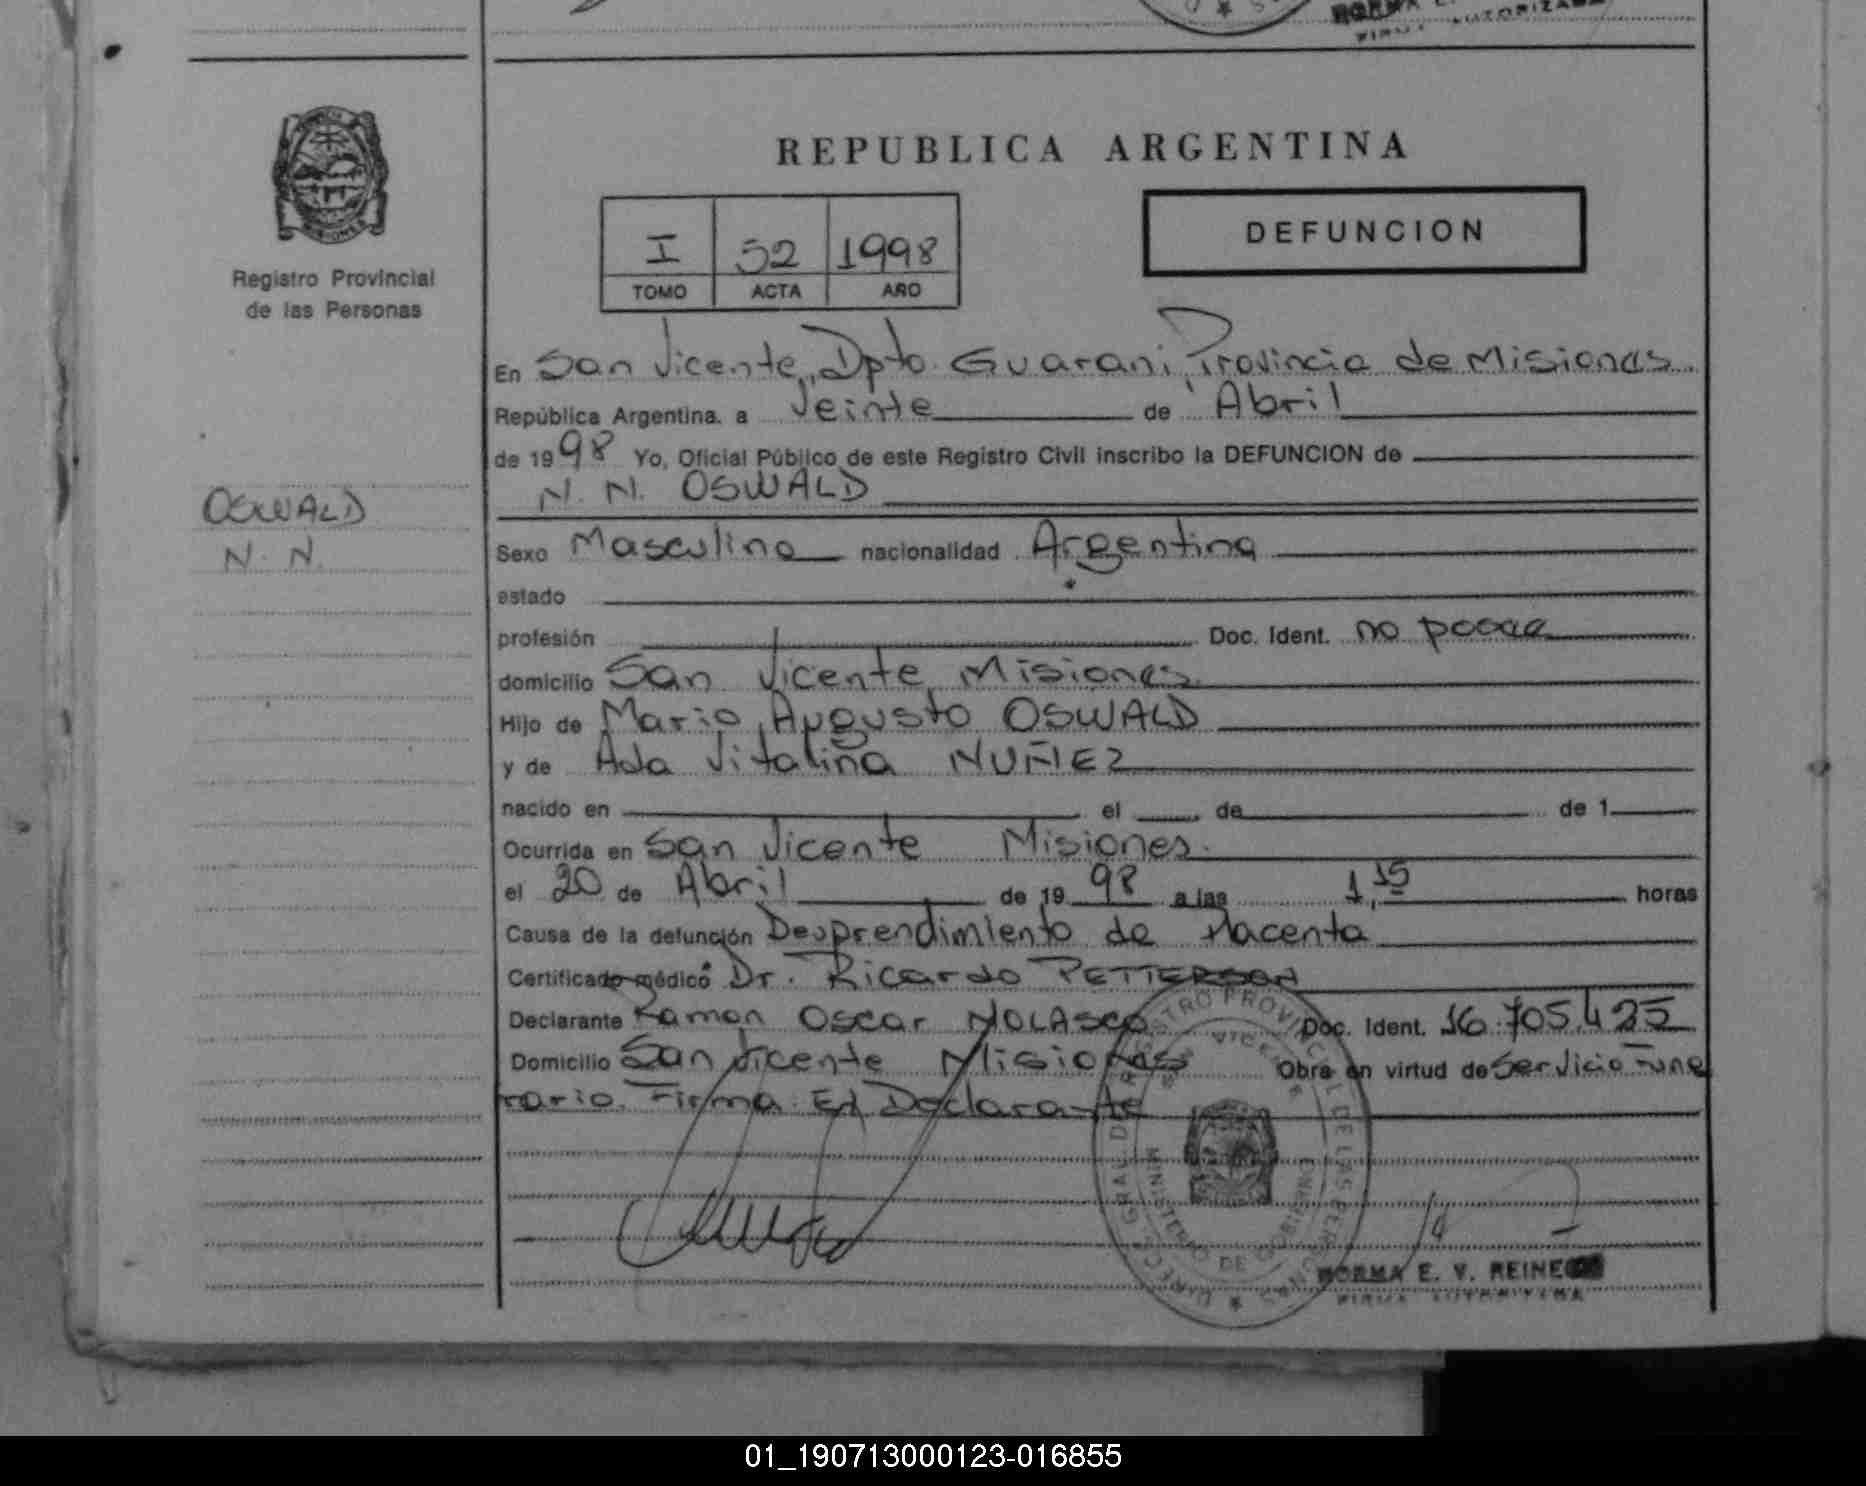 REPUBLICA ARGENTINA
Registro Provincial
de las Personas
I 52 1998
TOMO ACTA AÑO
DEFUNCION
En San Vicente, Dpto. Guarani, Provincia de Misiones.
República Argentina. a Veinte de Abril
de 1998 Yo, Oficial Público de este Registro Civil inscribo la DEFUNCION de
N. N. OSWALD
OSWALD
N. N.
Sexo Masculino nacionalidad Argentina
estado
profesión Doc. Ident. no posee
domicilio San Vicente, Misiones.
Hijo de Mario Augusto OSWALD
y de Ada Vitalina NUÑEZ
nacido en el de de 1
Ocurrida en San Vicente Misiones.
el 20 de Abril de 19 98 a las 1,15 horas
Causa de la defunción Desprendimiento de Placenta
Certificado médico Dr. Ricardo PETTERSON
Declarante Ramon Oscar NOLASCO Doc. Ident. 16.705.425
Domicilio San Vicente Misiones Obra en virtud de Servicio Fune
rario. Firma: El Declarante
DIREC. GRAL. DEL REGISTRO PROVINCIAL DE LAS PERSONAS
SAN VICENTE
MINISTERIO DE GOBIERNO
NORMA E. V.
FIRMA AUTORIZADA
01_190713000123-016855